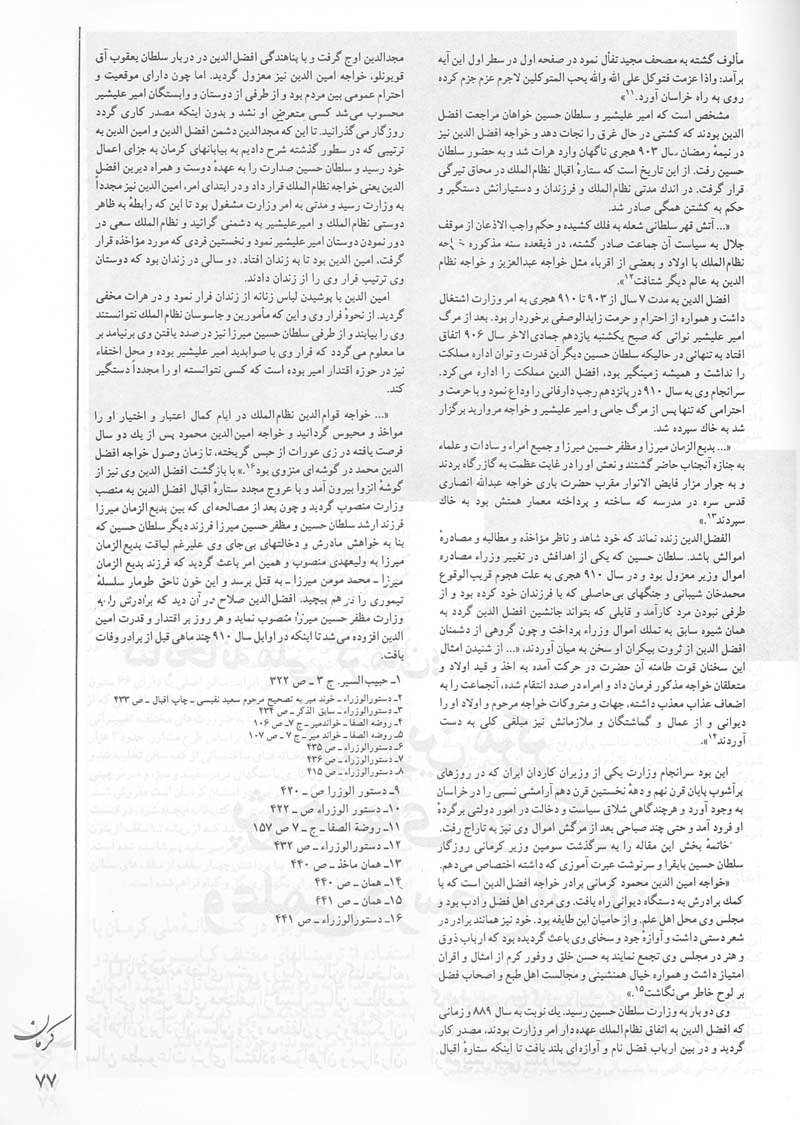 مألوف گشته به مصحف مجید تفأل نمود در صفحه اول در سطر اول این آیه
برآمد: واذا عزمت فتوکل علی الله والله یحب المتوکلین لاجرم عزم جزم کرده
روی به راه خراسان آورد.۱۱»
مشخص است که امیر علیشیر و سلطان حسین خواهان مراجعت افضل
الدین بودند که کشتی در حال غرق را نجات دهد و خواجه افضل الدین نیز
در نیمهٔ رمضان سال ۹۰۳ هجری ناگهان وارد هرات شد و به حضور سلطان
حسین رفت. از این تاریخ است که ستارهٔ اقبال نظام الملك در محاق تیرگی
قرار گرفت. در اندك مدتی نظام الملك و فرزندان و دستیارانش دستگیر و
حکم به کشتن همگی صادر شد.
«... آتش قهر سلطانی شعله به فلك کشیده و حکم واجب الاذعان از موقف
جلال به سیاست آن جماعت صادر گشته، در ذیقعده سنه مذکوره خواجه
نظام‌الملك با اولاد و بعضی از اقرباء مثل خواجه عبدالعزیز و خواجه نظام
الدین به عالم دیگر شتافت۱۲».
افضل الدین به مدت ۷ سال از ۹۰۳ تا ۹۱۰ هجری به امر وزارت اشتغال
داشت و همواره از احترام و حرمت زایدالوصفی برخوردار بود. بعد از مرگ
امیر علیشیر نوائی که صبح یکشنبه یازدهم جمادی‌الاخر سال ۹۰۶ اتفاق
افتاد به تنهائی در حالیکه سلطان حسین دیگر آن قدرت و توان اداره مملکت
را نداشت و همیشه زمینگیر بود، افضل الدین مملکت را اداره می‌کرد.
سرانجام وی به سال ۹۱۰ در پانزدهم رجب دارفانی را وداع نمود و با حرمت و
احترامی که تنها پس از مرگ جامی و امیر علیشیر و خواجه مروارید برگزار
شد به خاك سپرده شد.
«... بدیع الزمان میرزا و مظفر حسین میرزا و جمیع امراء و سادات و علماء
به جنازه آنجناب حاضر گشتند و نعش او را در غایت عظمت به گازرگاه بردند
و به جوار مزار فایض الانوار مقرب حضرت باری خواجه عبدالله انصاری
قدس سره در مدرسه که ساخته و پرداخته معمار همتش بود به خاك
سپردند۱۳.»
الفضل الدین زنده نماند که خود شاهد و ناظر مؤاخذه و مطالبه و مصادرهٔ
اموالش باشد. سلطان حسین که یکی از اهدافش در تغییر وزراء مصادره
اموال وزیر معزول بود و در سال ۹۱۰ هجری به علت هجوم قریب‌الوقوع
محمدخان شیبانی و جنگهای بی‌حاصلی که با فرزندان خود کرده بود و از
طرفی نبودن مرد کارآمد و قابلی که بتواند جانشین افضل الدین گردد به
همان شیوه سابق به تملك اموال وزراء پرداخت و چون گروهی از دشمنان
افضل الدین از ثروت بیکران او سخن به میان آوردند، «... از شنیدن امثال
این سخنان قوت طامنه آن حضرت در حرکت آمده به اخذ و قید اولاد و
متعلقان خواجه مذکور فرمان داد و امراء در صدد انتقام شده، آنجماعت را به
اضعاف عذاب معذب داشته، جهات و متروکات خواجه مرحوم و اولاد او را
دیوانی و از عمال و گماشتگان و ملازمانش نیز مبلغی کلی به دست
آوردند۱۴».
این بود سرانجام وزارت یکی از وزیران کاردان ایران که در روزهای
پرآشوب پایان قرن نهم و دههٔ نخستین قرن دهم آرامشی نسبی را در خراسان
به وجود آورد و هرچندگاهی شلاق سیاست و دخالت در امور دولتی برگردهٔ
او فرود آمد و حتی چند صباحی بعد از مرگش اموال وی نیز به تاراج رفت.
خاتمهٔ بخش این مقاله را به سرگذشت سومین وزیر کرمانی روزگار
سلطان حسین بایقرا و سرنوشت عبرت آموزی که داشته اختصاص می‌دهم.
«خواجه امین الدین محمود کرمانی برادر خواجه افضل الدین است که با
کمك برادرش به دستگاه دیوانی راه یافت. وی مردی اهل فضل و ادب بود و
مجلس وی محل اهل علم، و از حامیان این طایفه بود. خود نیز همانند برادر در
شعر دستی داشت و آوازهٔ جود و سخای وی باعث گردیده بود که ارباب ذوق
و هنر در مجلس وی تجمع نمایند به حسن خلق و وفور کرم از امثال و اقران
امتیاز داشت و همواره خیال همنشینی و مجالست اهل طبع و اصحاب فضل
بر لوح خاطر می‌نگاشت۱۵.»
وی دو بار به وزارت سلطان حسین رسید. یك نوبت به سال ۸۸۹ و زمانی
که افضل الدین به اتفاق نظام الملك عهده‌دار امر وزارت بودند، مصدر کار
گردید و در بین ارباب فضل نام و آوازه‌ای بلند یافت تا اینکه ستارهٔ اقبال
مجدالدین اوج گرفت و با پناهندگی افضل الدین در دربار سلطان یعقوب آق
قویونلو، خواجه امین الدین نیز معزول گردید. اما چون دارای موقعیت و
احترام عمومی بین مردم بود و از طرفی از دوستان و وابستگان امیر علیشیر
محسوب می‌شد کسی متعرض او نشد و بدون اینکه مصدر کاری گردد
روزگار می‌گذرانید. تا این که مجدالدین دشمن افضل الدین و امین الدین به
ترتیبی که در سطور گذشته شرح دادیم به بیابانهای کرمان به جزای اعمال
خود رسید و سلطان حسین صدارت را به عهدهٔ دوست و همراه دیرین افضل
الدین یعنی خواجه نظام الملك قرار داد و در ابتدای امر، امین الدین نیز مجدداً
به وزارت رسید و مدتی به امر وزارت مشغول بود تا این که رابطهٔ به ظاهر
دوستی نظام‌الملك و امیرعلیشیر به دشمنی گرائید و نظام‌الملك سعی در
دور نمودن دوستان امیر علیشیر نمود و نخستین فردی که مورد مؤاخذه قرار
گرفت، امین الدین بود تا به زندان افتاد. دو سالی در زندان بود که دوستان
وی ترتیب فرار وی را از زندان دادند.
امین الدین با پوشیدن لباس زنانه از زندان فرار نمود و در هرات مخفی
گردید. از نحوهٔ فرار وی و این که مأمورین و جاسوسان نظام الملك نتوانستند
وی را بیابند و از طرفی سلطان حسین میرزا نیز در صدد یافتن وی برنیامد بر
ما معلوم می‌گردد که فرار وی با صوابدید امیر علیشیر بوده و محل اختفاء
نیز در حوزه اقتدار امیر بوده است که کسی نتوانسته او را مجدداً دستگیر
کند.
«... خواجه قوام الدین نظام الملك در ایام کمال اعتبار و اختیار او را
مواخذ و محبوس گردانید و خواجه امین الدین محمود پس از یك دو سال
فرصت یافته در زی عورات از حبس گریخته، تا زمان وصول خواجه افضل
الدین محمد در گوشه‌ای منزوی بود۱۶.» با بازگشت افضل الدین وی نیز از
گوشهٔ انزوا بیرون آمد و با عروج مجدد ستارهٔ اقبال افضل الدین به منصب
وزارت منصوب گردید و چون بعد از مصالحه‌ای که بین بدیع الزمان میرزا
فرزند ارشد سلطان حسین و مظفر حسین میرزا فرزند دیگر سلطان حسین که
بنا به خواهش مادرش و دخالتهای بی‌جای وی علیرغم لیاقت بدیع الزمان
میرزا به ولیعهدی منصوب و همین امر باعث گردید که فرزند بدیع الزمان
میرزا ـ محمد مومن میرزا ـ به قتل برسد و این خون ناحق طومار سلسلهٔ
تیموری را درهم پیچید. افضل‌الدین صلاح در آن دید که برادرش را به
وزارت مظفر حسین میرزا منصوب نماید و هر روز بر اقتدار و قدرت امین
الدین افزوده می‌شد تا اینکه در اوایل سال ۹۱۰ چند ماهی قبل از برادر وفات
یافت.
۱ـ حبیب‌السیر. ج ۳ ـ ص ۳۲۲
۲ـ دستورالوزراء ـ خوند میر به تصحیح مرحوم سعید نفیسی ـ چاپ اقبال ـ ص ۴۳۳
۳ـ دستورالوزراء ـ سابق الذکر ـ ص ۴۳۴
۴ـ روضه الصفا ـ خواندمیر ـ ج ۷ـ ص ۱۰۶
۵ـ روضه الصفا ـ خواند میر ـ ج ۷ ـ ص ۱۰۷
۶ـ دستورالوزراء ـ ص ۴۳۵
۷ـ دستورالوزراء ـ ص ۴۳۶
۸ـ دستورالوزراء ـ ص ۴۱۵
۹ـ دستور الوزرا ص ـ ۴۲۰
۱۰ـ دستور الوزراء ص ـ ۴۲۲
۱۱ـ روضة الصفا ـ ج ـ ۷ ص ۱۵۷
۱۲ـ دستورالوزراء ـ ص ۴۳۲
۱۳ـ همان ماخذ ـ ص ۴۴۰
۱۴ـ همان ـ ص ۴۴۰
۱۵ـ همان ـ ص ۴۴۱
۱۶ـ دستورالوزراء ـ ص ۴۴۱
کرمان
۷۷